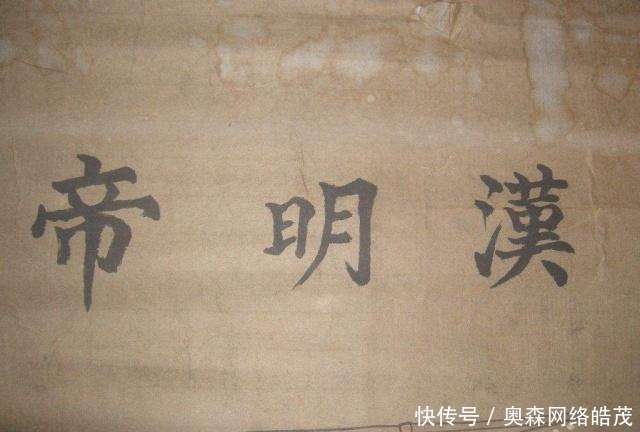 漢明帝
快传号/奥森网络皓茂